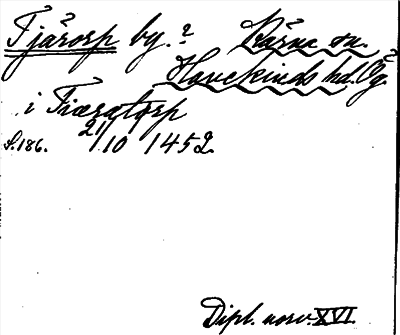 Fjärorp by.? Kärna sn.
Hanekinds hd. Ög.
i Fiæratorp
S. 186. 21/10 1452.
Dipl. norv. XVI.